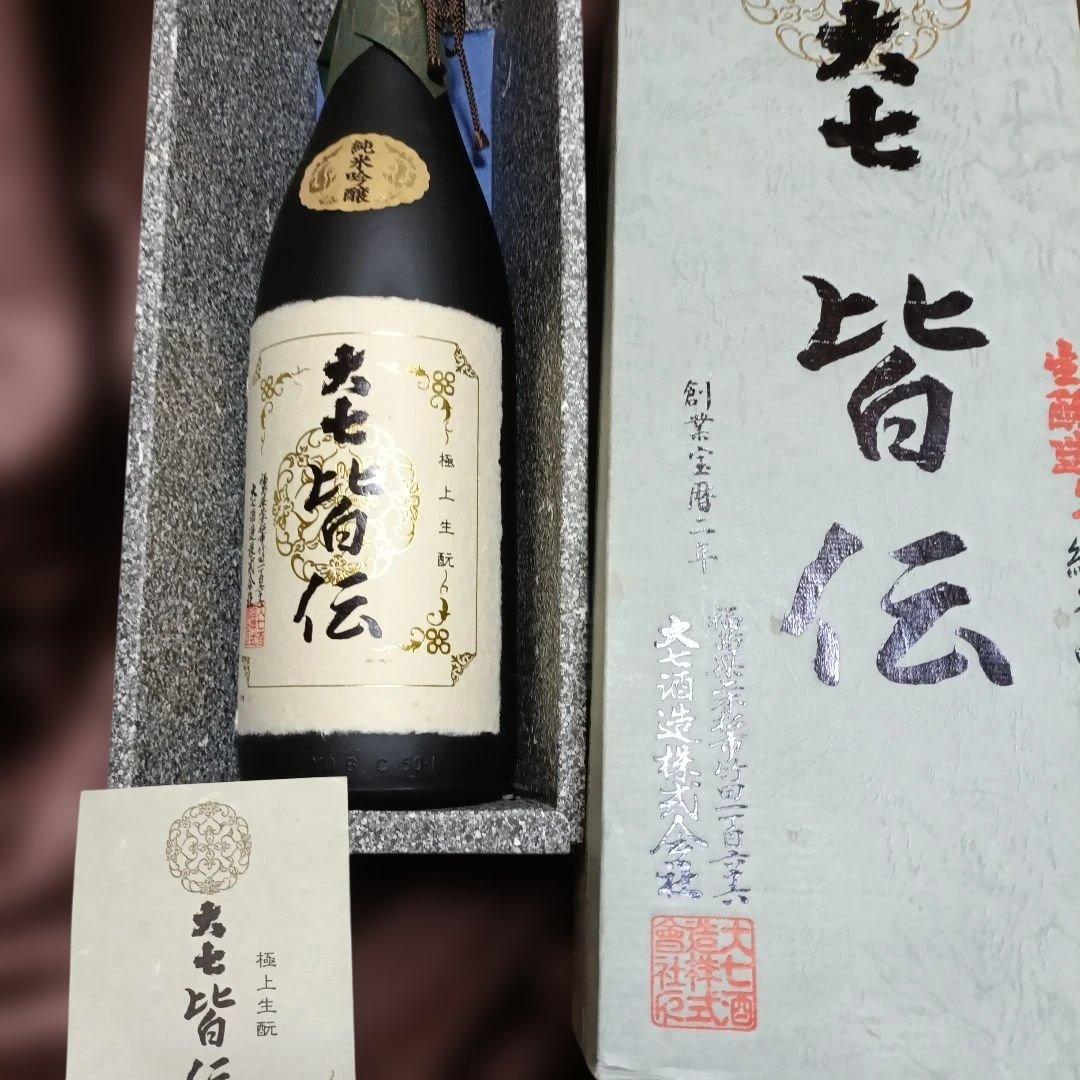 純米吟醸
大七
皆伝
極上生酛
大七酒造株式会社
M B C 50-1
大七
皆伝
極上生酛
大七
皆伝
創業宝暦二年
福島県二本松市竹田一丁目六六
大七酒造株式会社
大七酒
造株式
會社